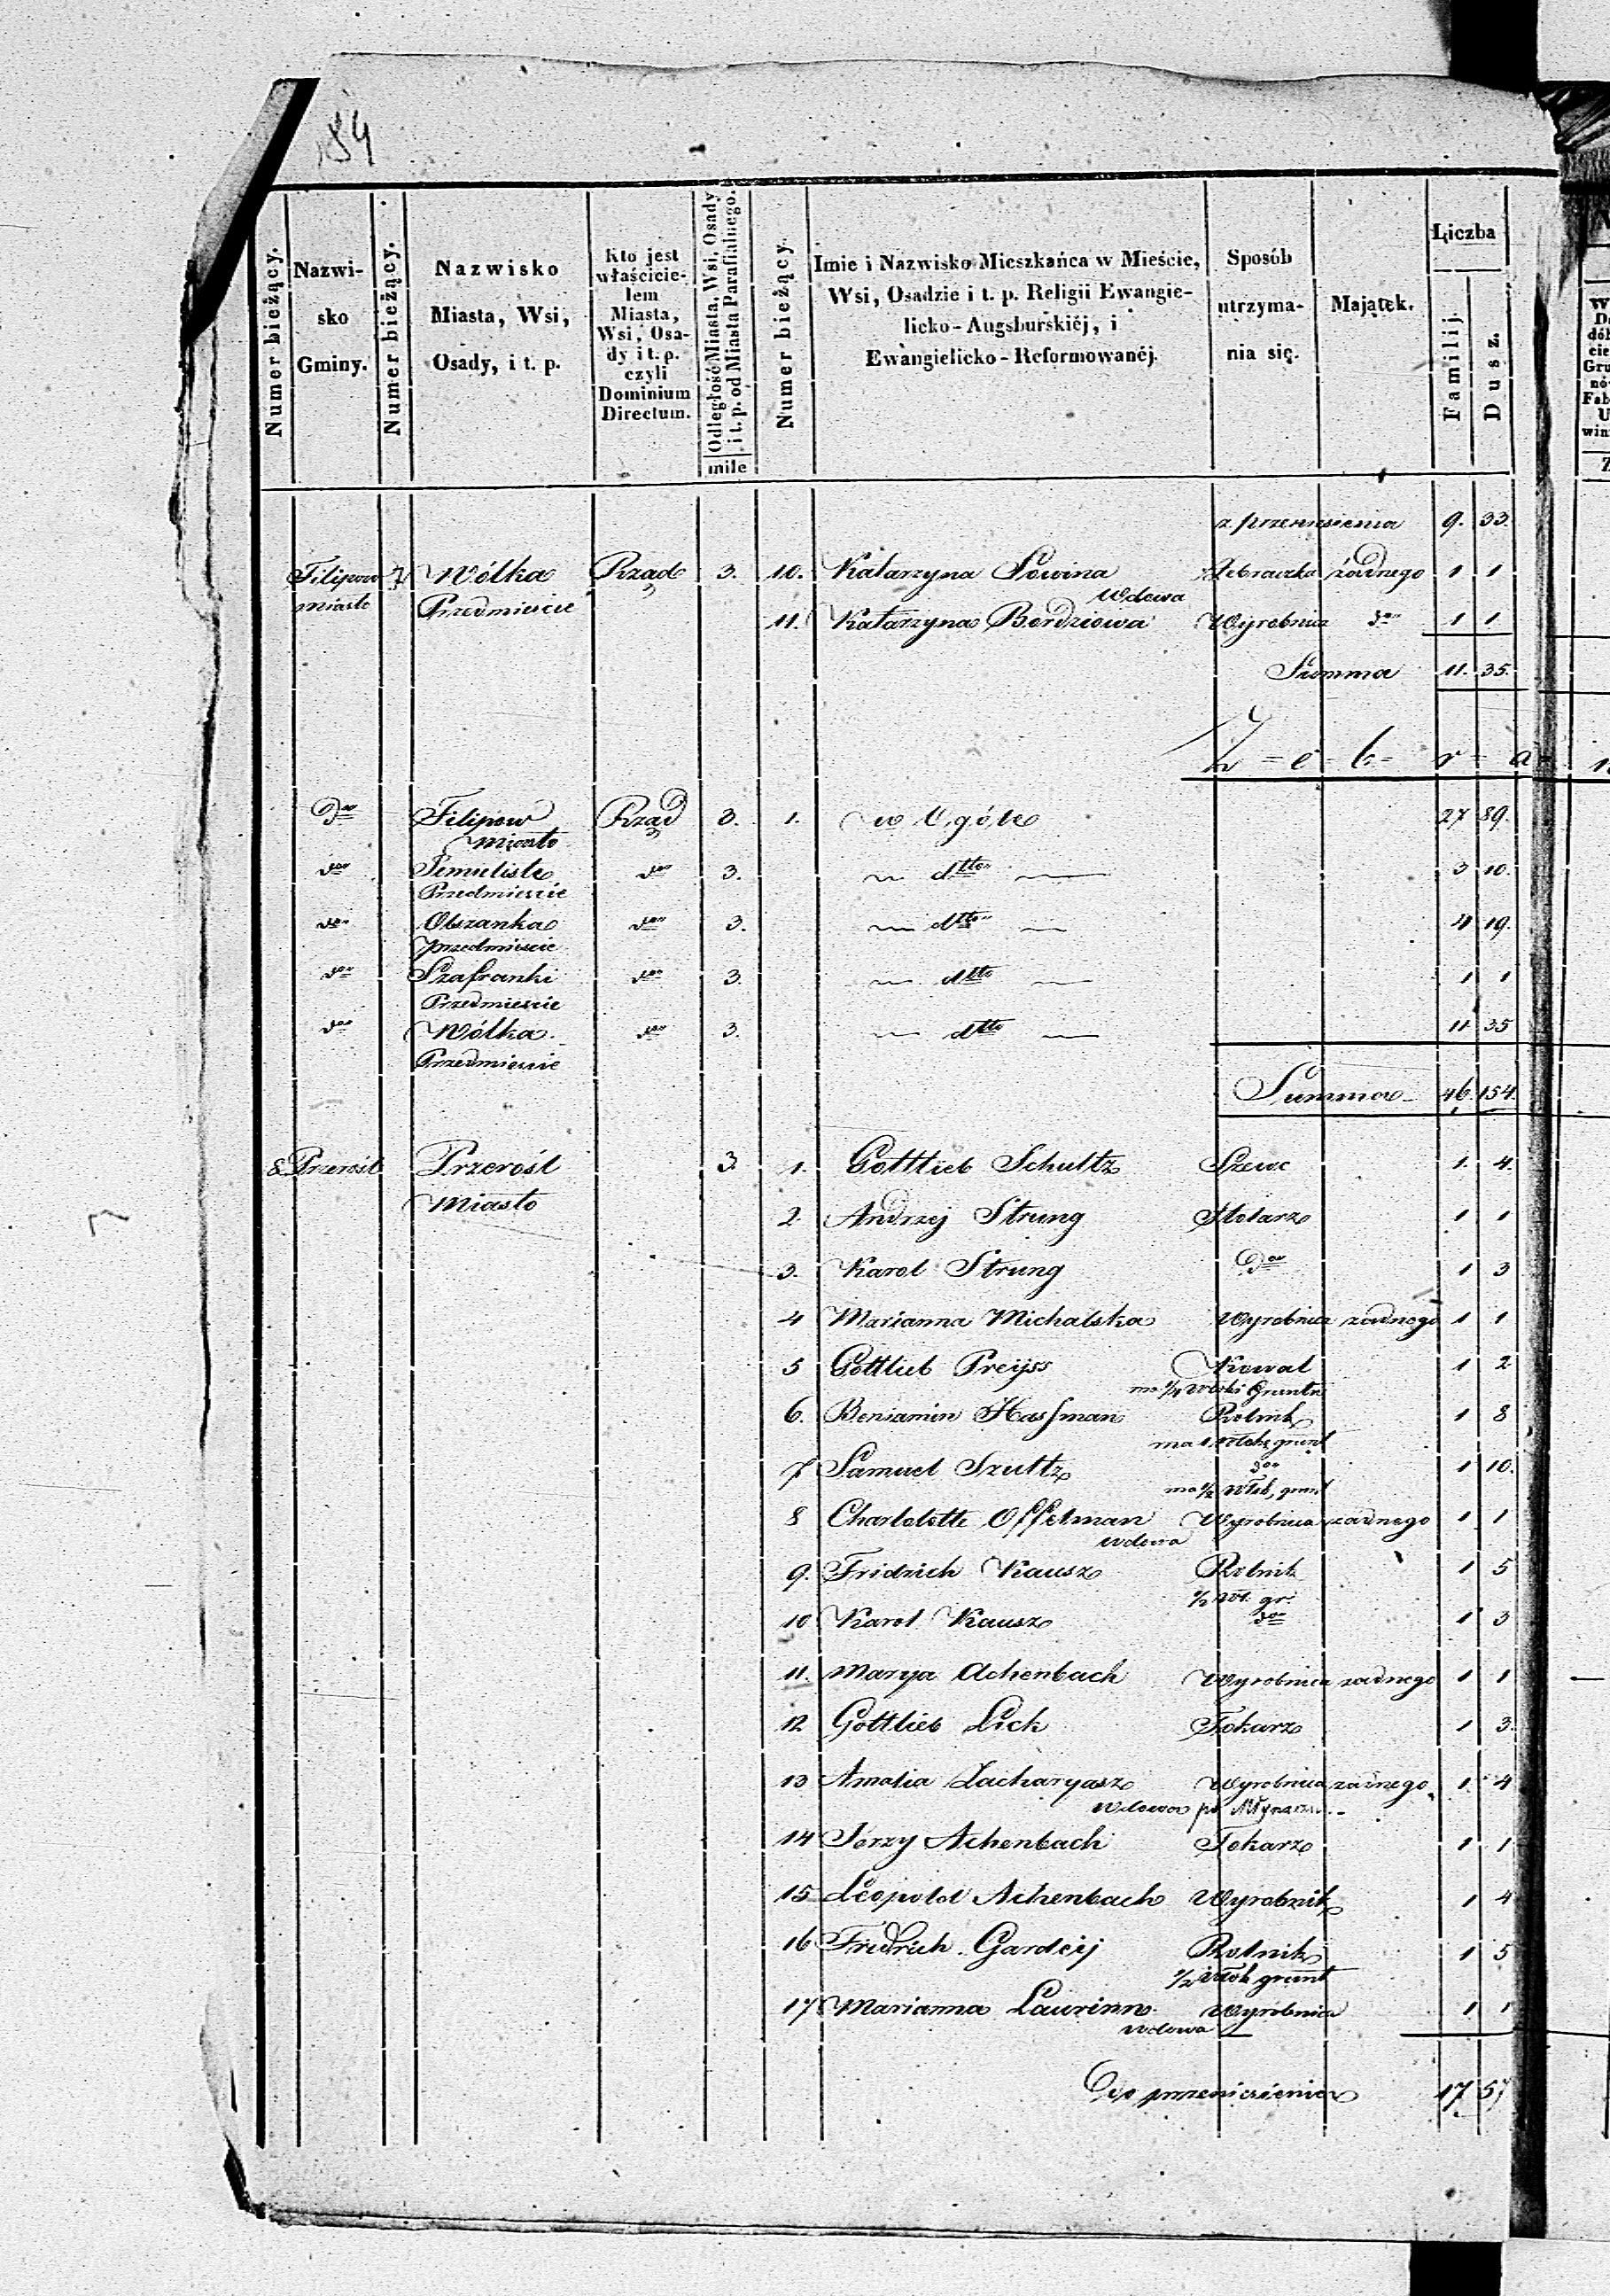 84
Numer bieżący.
Nazwi-
sko
Gminy.
Numer bieżący.
Nazwisko
Miasta, Wsi,
Osady, i t. p.
Kto jest
właścicie-
lem
Miasta,
Wsi, Osa-
dy i t. p.
czyli
Dominium
Directum.
Odległość Miasta, Wsi, Osady
i t. p. od Miasta Parafialnego.
mile
Numer bieżący.
Imie i Nazwisko Mieszkańca w Mieście,
Wsi, Osadzie i t. p. Religii Ewangie-
licko-Augsburskiéj, i
Ewangielicko-Reformowanéj.
Sposób
utrzyma-
nia się.
Majątek.
Liczba
Familij.
Dusz.
z przeniesienia 9. 33.
Filipow 7 Wólka Rząd 3. 10. Katarzyna Sowina Żebraczka żadnego 1 1
miasto Przedmieście Wdowa
11. Katarzyna Bordziowa Wyrobnica do 1 1
Summa 11. 35.
Z = e = b = r = a =
do Filipow Rząd 3. 1. w Ogóle 27 89.
Miasto
do 3. dtto 3 10.
Przedmieście
do Olszanka do 3. dtto 4 19.
przedmieście
do Szafranki do 3. dtto 1 1
Przedmieście
do Wólka do 3. dtto 11 35
Przedmieście
Summa 46. 154.
8 Przerośl Przerośl 3. 1. Gottlieb Schultz Szewc 1. 4.
Miasto
2. Andrzej Strung Stolarz 1 1
3. Karol Strung do 1 3
4 Marianna Michalska Wyrobnica żadnego 1 1
5 Gottlieb Preyss Kowal 1 2
ma 1/4 włoki Gruntu
6. Beniamin Hassman Rolnik 1 8
ma 1 włokę grunt
7 Samuel Szultz do 1 10.
ma 1/2 włok, grunt
8 Charlotte Offelman Wyrobnica żadnego 1 1
wdowa
9. Fridrich Kausz Rolnik 1 5
1/2 wł. gr.
10 Karol Kausz do 1 3
11. Marya Achenbach Wyrobnica żadnego 1 1
12 Gottlieb Lick Tokarz 1 3.
13 Amalia Zacharyasz Wyrobnica żadnego 1. 4
Wdowa po Młynarzu
14 Jerzy Achenbach Tokarz 1 1
15 Leopold Achenbach Wyrobnik 1 4
16 Fridrich Gardeij Rolnik 1 5
1/2 włok grunt
17 Marianna Laurinn Wyrobnica 1 1
wdowa
Do przeniesienia 17 57